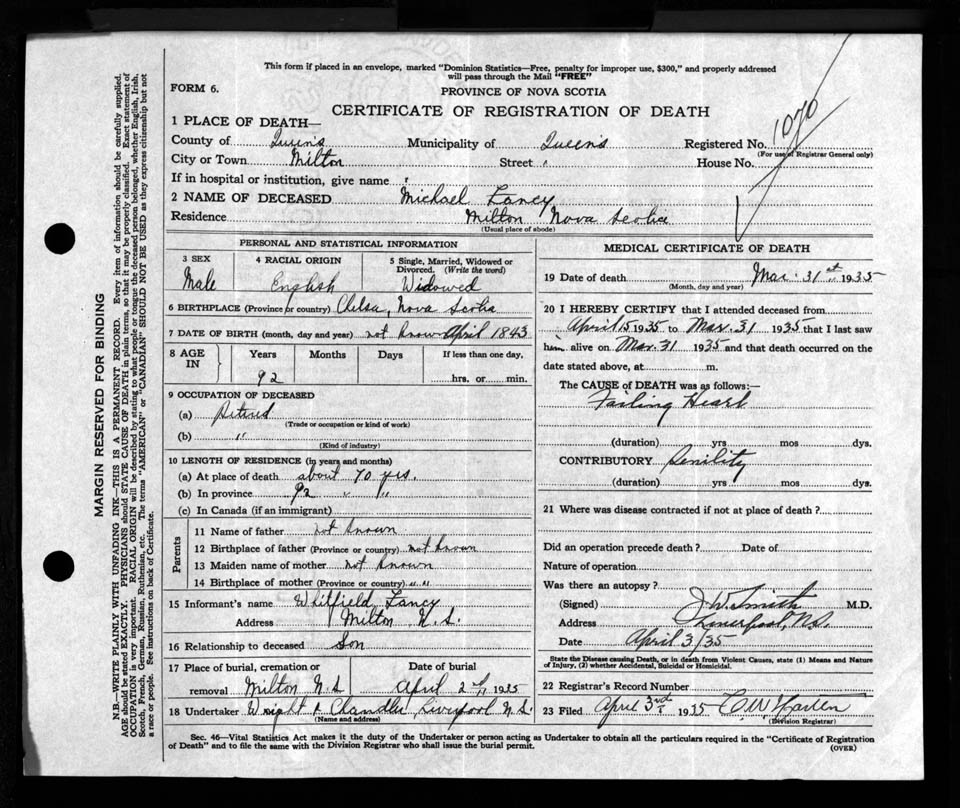 This form if placed in an envelope, marked "Dominion Statistics—Free, penalty for improper use, $300," and properly addressed
will pass through the Mail "FREE"
FORM 6.
PROVINCE OF NOVA SCOTIA
CERTIFICATE OF REGISTRATION OF DEATH
1 PLACE OF DEATH—
County of Queens Municipality of Queens Registered No. 1070
(For use of Registrar General only)
City or Town Milton Street " House No.
If in hospital or institution, give name
2 NAME OF DECEASED Michael Lancy
Residence Milton Nova Scotia
(Usual place of abode)
PERSONAL AND STATISTICAL INFORMATION
3 SEX Male
4 RACIAL ORIGIN English
5 Single, Married, Widowed or Divorced. (Write the word) Widowed
6 BIRTHPLACE (Province or country) Chelsa, Nova Scotia
7 DATE OF BIRTH (month, day and year) not know April 1843
8 AGE IN Years Months Days If less than one day,
92 hrs. or min.
9 OCCUPATION OF DECEASED
(a) Retired
(Trade or occupation or kind of work)
(b) "
(Kind of industry)
10 LENGTH OF RESIDENCE (in years and months)
(a) At place of death about 70 yrs.
(b) In province 92 " "
(c) In Canada (if an immigrant)
Parents
11 Name of father not known
12 Birthplace of father (Province or country) not known
13 Maiden name of mother not known
14 Birthplace of mother (Province or country) " "
15 Informant's name Whitfield Lancy
Address Milton N.S.
16 Relationship to deceased Son
17 Place of burial, cremation or Date of burial
removal Milton N.S April 2nd 1935
18 Undertaker Wright & Chandler Liverpool N.S.
(Name and address)
MEDICAL CERTIFICATE OF DEATH
19 Date of death Mar. 31st 1935
(Month, day and year)
20 I HEREBY CERTIFY that I attended deceased from
April 15 1935 to Mar. 31 1935 that I last saw
him alive on Mar. 31 1935 and that death occurred on the
date stated above, at m.
The CAUSE of DEATH was as follows:—
Failing Heart
(duration) yrs mos dys.
CONTRIBUTORY Senility
(duration) yrs mos dys.
21 Where was disease contracted if not at place of death?
Did an operation precede death? Date of
Nature of operation
Was there an autopsy?
(Signed) J W Smith M.D.
Address Liverpool, N.S.
Date April 3/35
State the Disease causing Death, or in death from Violent Causes, state (1) Means and Nature
of Injury, (2) whether Accidental, Suicidal or Homicidal.
22 Registrar's Record Number
23 Filed April 3rd 1935
(Division Registrar)
Sec. 46—Vital Statistics Act makes it the duty of the Undertaker or person acting as Undertaker to obtain all the particulars required in the "Certificate of Registration
of Death" and to file the same with the Division Registrar who shall issue the burial permit.
(OVER)
MARGIN RESERVED FOR BINDING
N.B.—WRITE PLAINLY WITH UNFADING INK—THIS IS A PERMANENT RECORD. Every item of information should be carefully supplied.
AGE should be stated EXACTLY. PHYSICIANS should STATE CAUSE OF DEATH in plain terms, so that it may be properly classified. Exact statement of
OCCUPATION is very important. RACIAL ORIGIN will be described by stating to what people or tongue the deceased person belonged, whether English, Irish,
Scotch, French, German, Russian, Ruthenian, etc. The terms "AMERICAN" or "CANADIAN" SHOULD NOT BE USED as they express citizenship but not
a race or people. See instructions on back of Certificate.